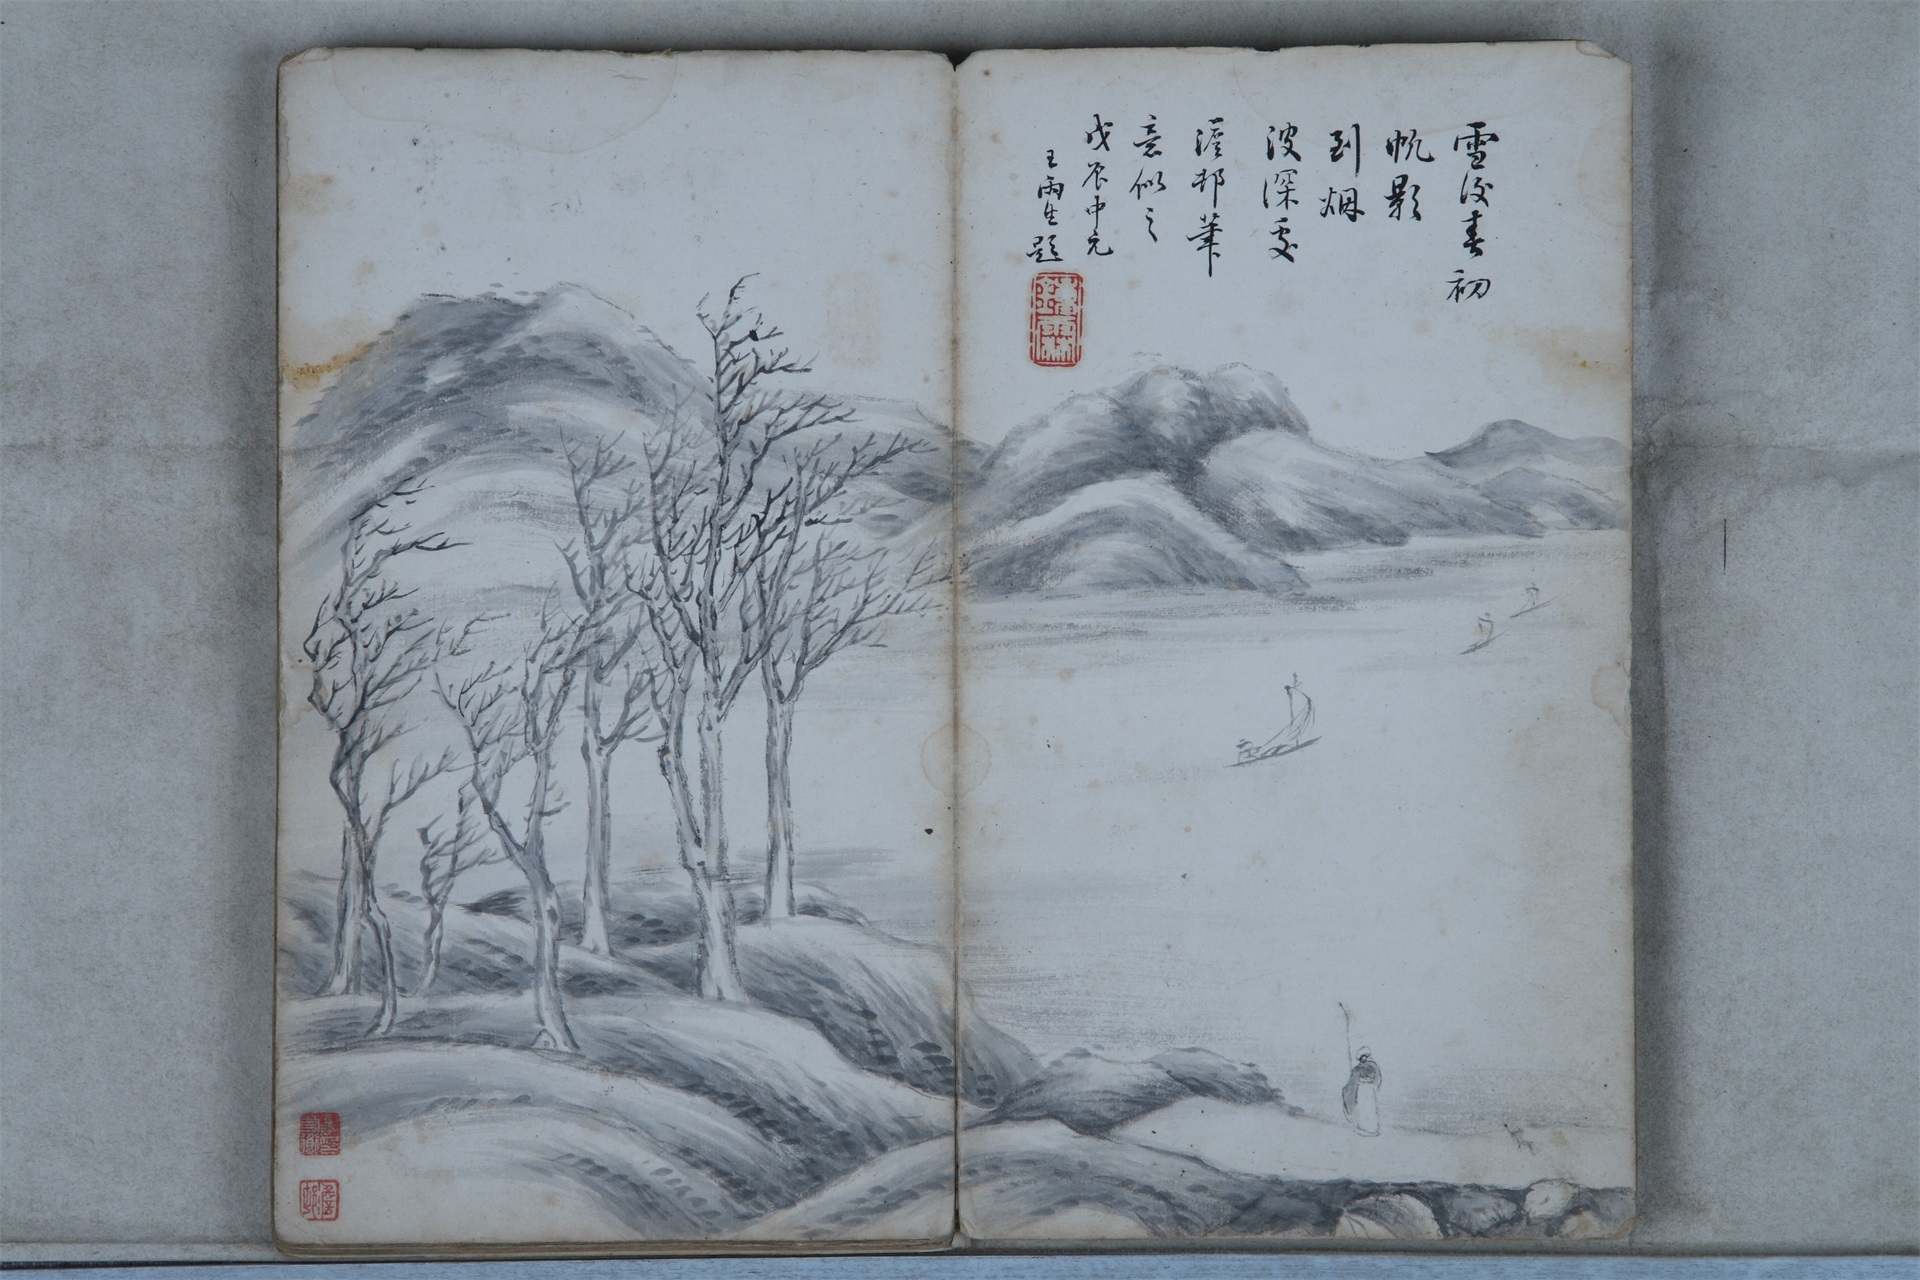 雪後春初
帆影
到烟
波深處
澹邨筆
意似之
戊辰中元
王雨生題